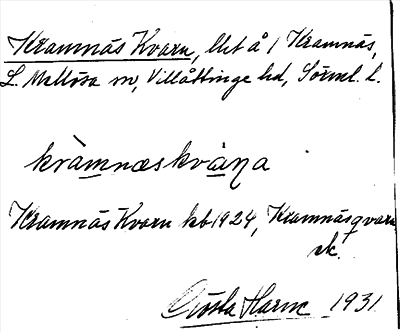 Kramnäs Kvarn, lht å 1 Kramnäs,
L. Mellösa sn, Villåttinge hd, Sörml. l.
kràmnæskvàɳa
Kramnäs Kvarn kb 1924, Kramnäsqvarn
sk.
Gösta Harn 1931